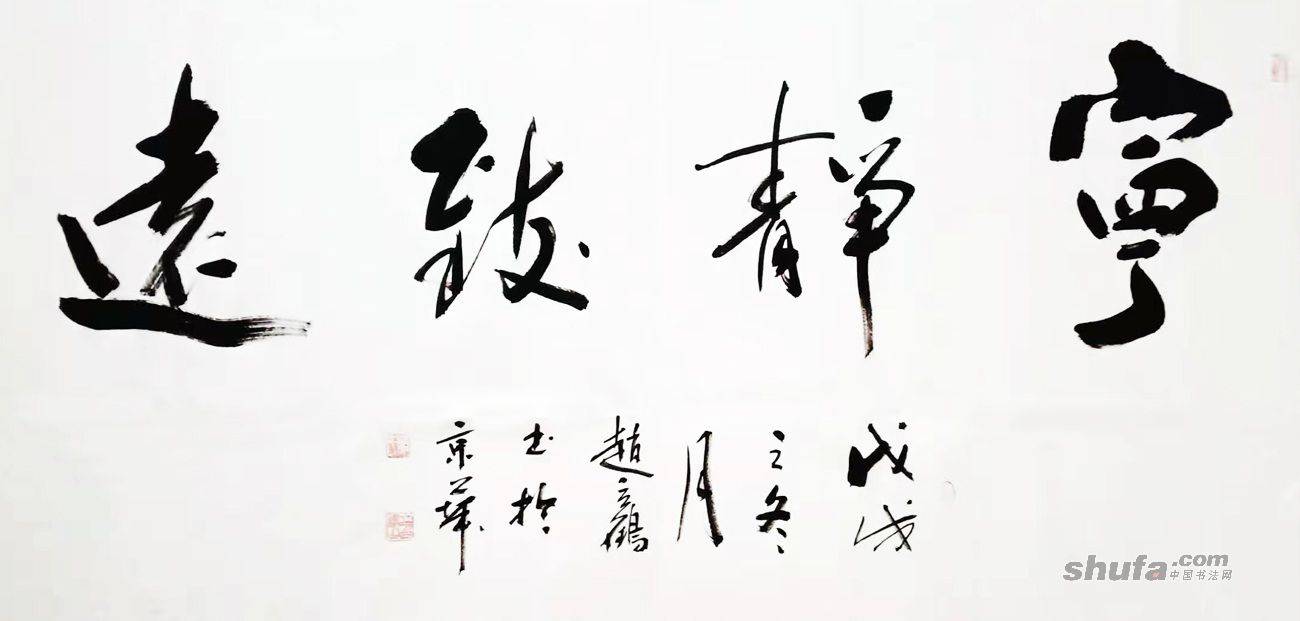 寧靜致遠
戊戌
之冬
月
趙云鶴
书於
京華
shufa.com
中国书法网